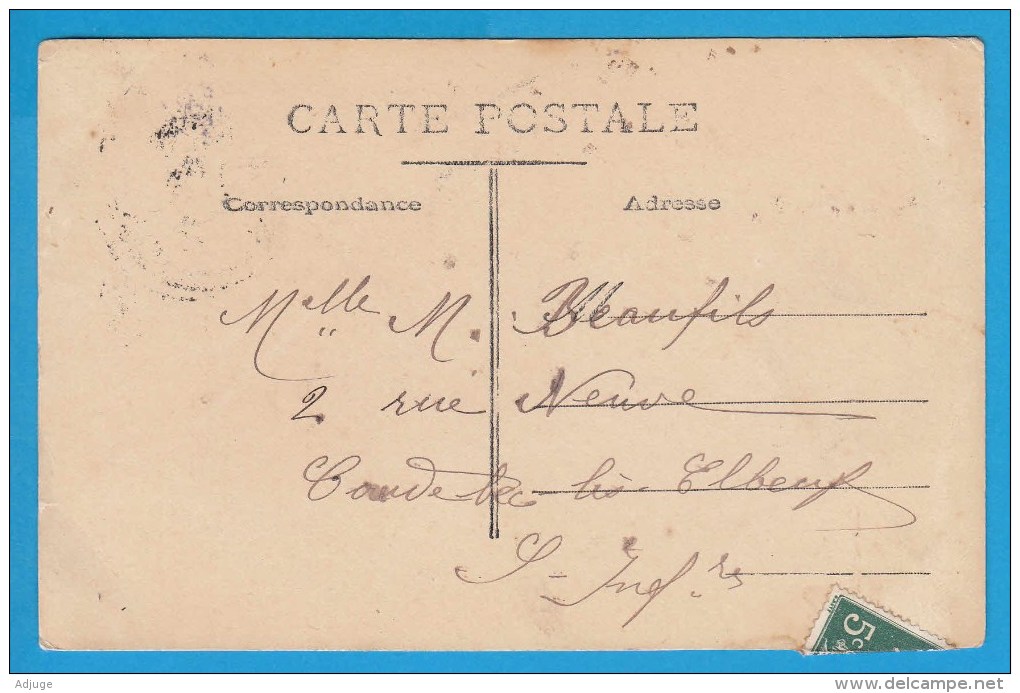 CARTE POSTALE
Correspondance
Adresse
Melle M. Beaufils
2 rue Neuve
Caudebec-lès-Elbeuf
S-Infre
5c
Adjuge
delcampe.net